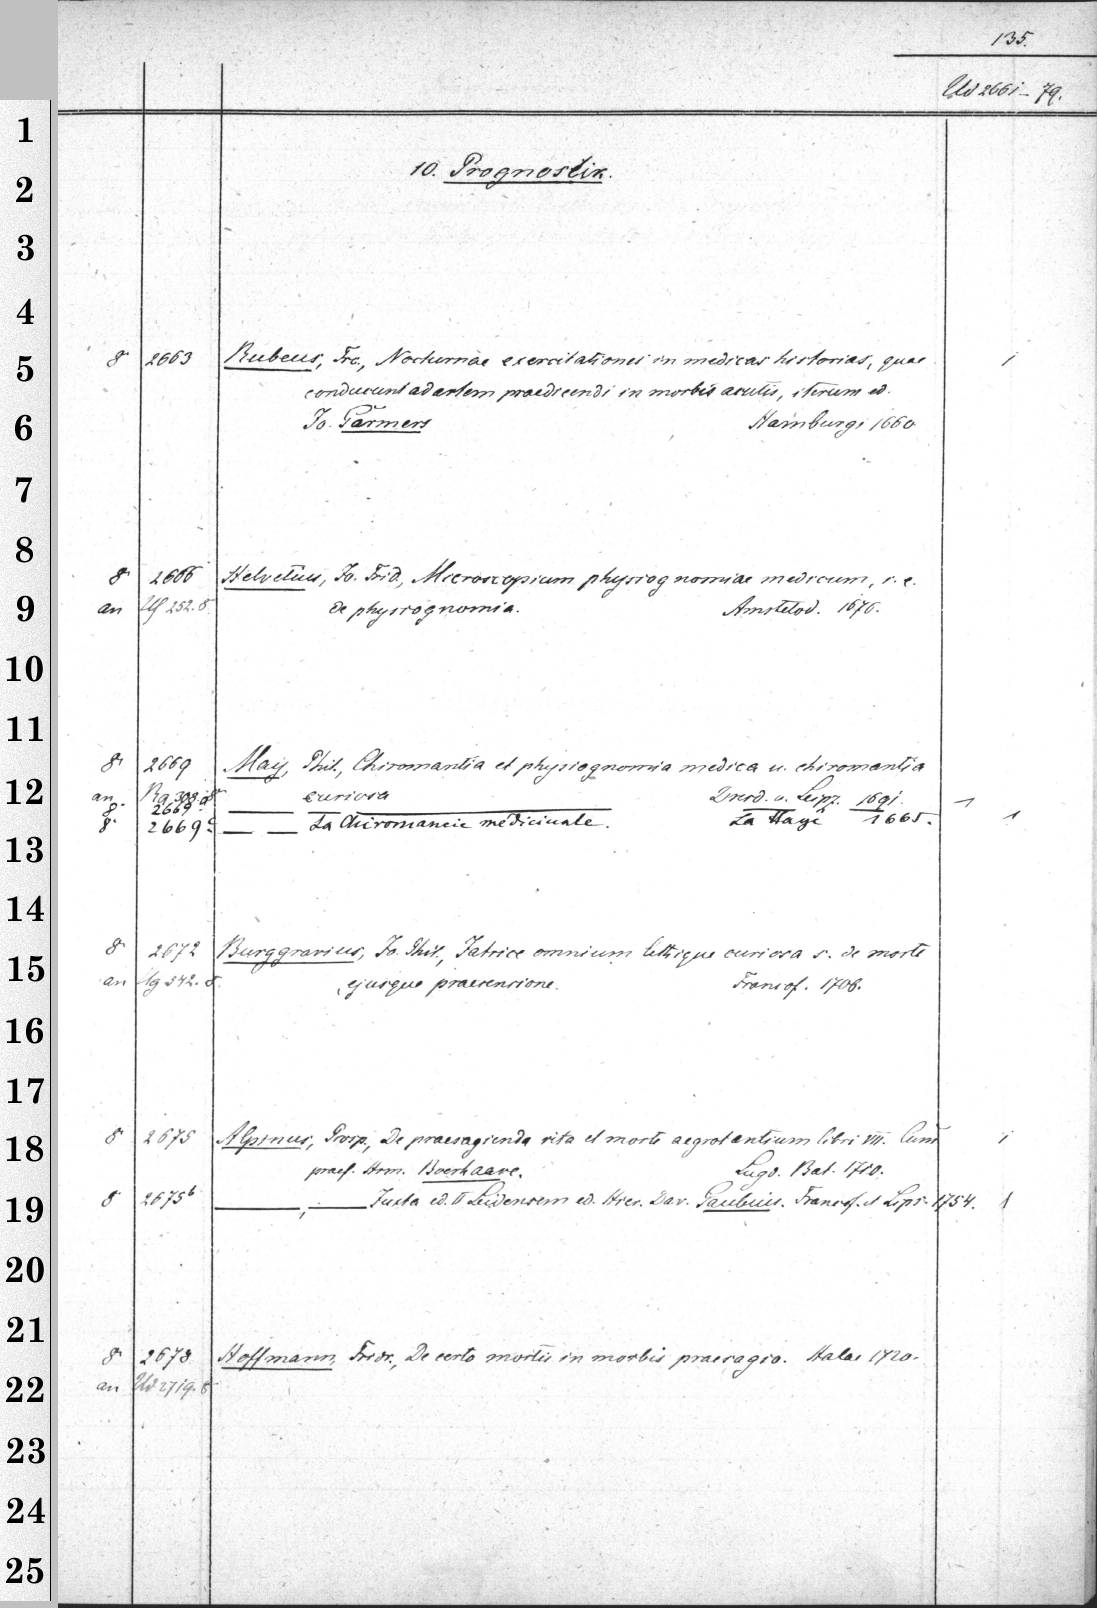 135.
Ud 2661-79.
1
10. Prognostik.
2
3
4
8° 2663 Rubeus, Frc., Nocturnae exercitationes in medicas historias, quae 1
5
conducunt ad artem praedicendi in morbis acutis, iterum ed.
Jo. Garmers Hamburgi 1660
6
7
8
8° 2666 Helvetius, Jo. Frid., Microscopium physiognomiae medicum, i. e.
9
an Uf 252. 8° de physiognomia. Amstelod. 1676.
10
11
8° 2669 May, Phil., Chiromantia et physiognomia medica u. chiromantia
12
an Ra 398. 8° curiosa Dresd. u. Leipz. 1691.
8° 2669 1
8° 2669 c La Chiromancie médicinale. La Haye 1665. 1
13
14
8° 2672 Burggravius, Jo. Phil., Iatrice omnium lethique curiosa s. de morte
15
an 342. 8° ejusque praesensione. Francof. 1706.
16
17
8° 2675 Alpinus, Prosp., De praesagienda vita et morte aegrotantium libri VII. Cum 1
18
praef. Hrm. Boerhaave. Lugd. Bat. 1710.
8° 2675 b , Juxta ed. II Leidensem ed. Hier. Dav. Gaubius. Francof. et Lips. 1754. 1
19
20
21
8° 2678 Hoffmann, Fridr., De certo mortis in morbis praesagio. Halae 1720.
22
an Ud 2719. 8°
23
24
25